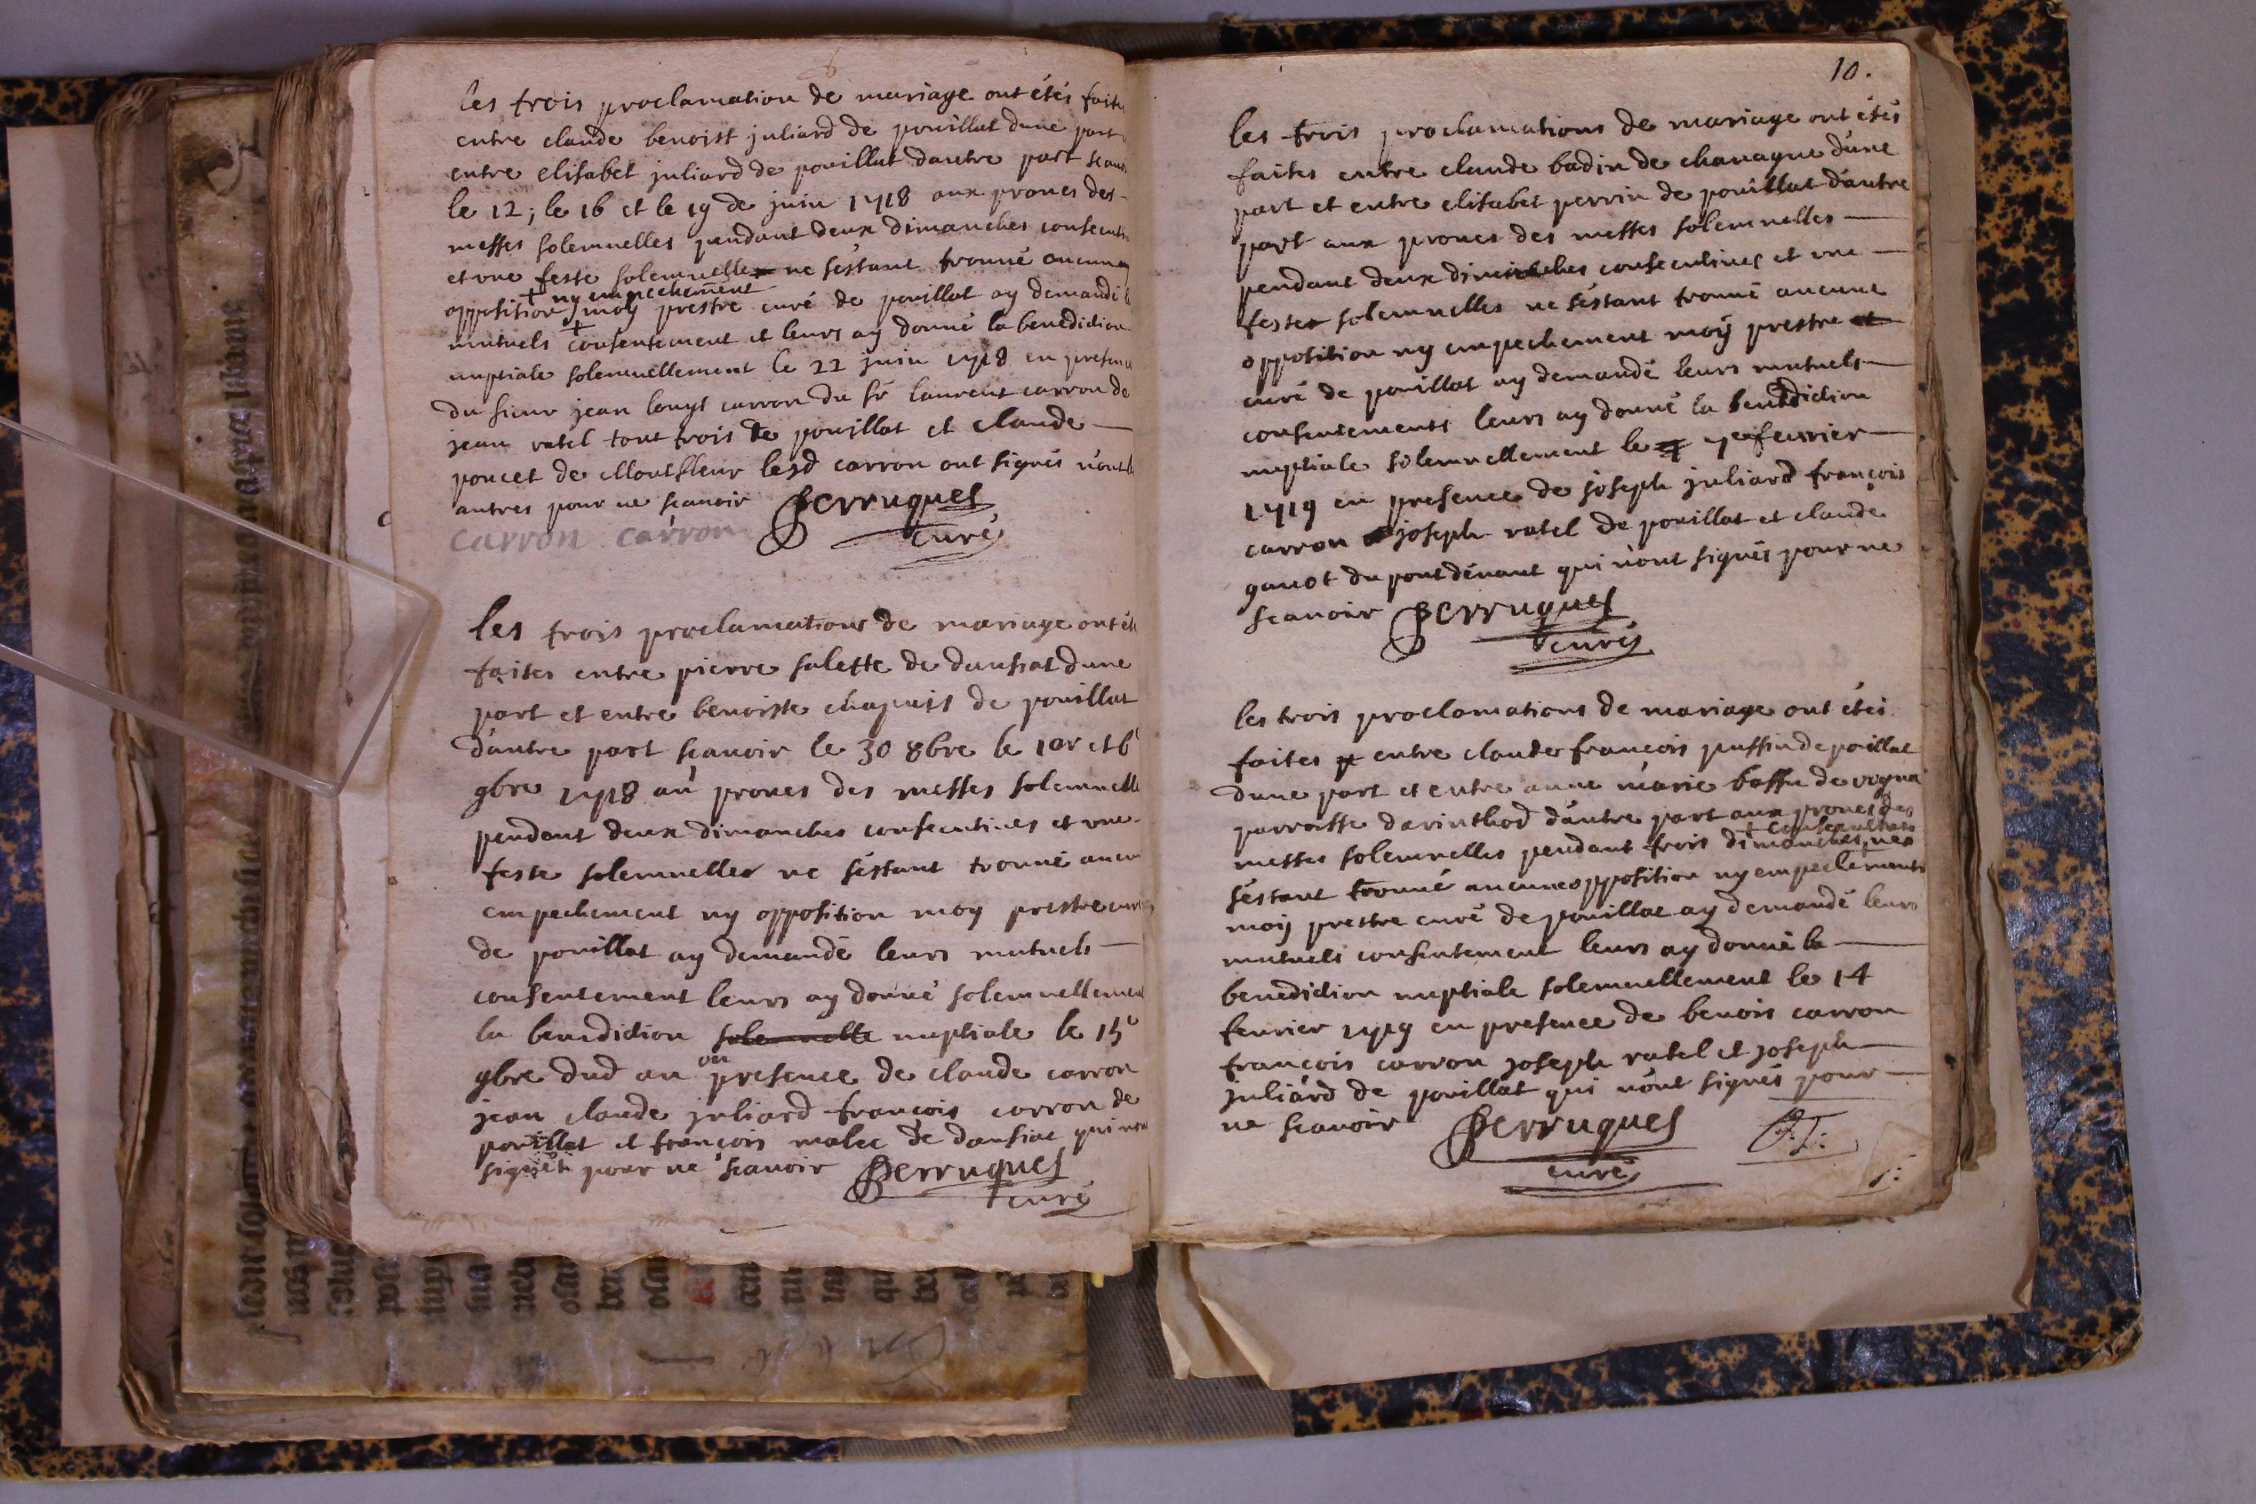 les trois proclamation de mariage ont étés faite
entre claude benoist juliard de pouillat dune part
entre elisabet juliard de pouillat dautre part scauoir
le 12, le 16 et le 19 de juin 1718 aux prones des
messes solemnelles pendant deux dimanches consecuti
et vne feste solemnelle ne s'éstant trouué aucune
opposition + ny empechement moy prestre curé de pouillat ay demandé l
mutuels + consentement et leurs ay donné la benediction
nuptiale solemnellement le 22 juin 1718 en presence
du sieur jean louys carron du sr laurent carron de
jean ratel tout trois de pouillat et claude
poncet de Montfleur lesd carron ont signés n'ont l
autres pour ne scauoir Perruquet
curé
carron carron
les trois proclamations de mariage ont été
faites entre pierre salette de dansiat dune
part et entre benoiste chapuis de pouillat
d'autre part scauoir le 30 8bre le 1er et 6e
9bre 1718 au prones des messes solemnelle
pendant deux dimanches consecutiues et vne
feste solemnelle ne s'éstant trouué aucun
empechement ny opposition moy prestre curé
de pouillat ay demandé leurs mutuels
consentement leurs ay donné solemnellement
la benediction solemnelle nuptiale le 15e
9bre dud an en presence de claude carron
jean claude juliard francois carron de
pouillat et francois malec de dansiat qui n'ont
signéts pour ne scauoir Perruquet
curé
10.
les trois proclamations de mariage ont étés
faites entre claude badin de chauagne d'une
part et entre elisabet perrin de pouillat d'autre
part aux prones des messes solemnelles
pendant deux dimanches consecutiues et vne
feste solemnelles ne s'éstant trouué aucune
opposition ny empechement moy prestre et
curé de pouillat ay demandé leurs mutuels
consentements leurs ay donné la benediction
nuptiale solemnellement le 7e feurier
1719 en presence de joseph juliard francois
carron joseph ratel de pouillat et claude
gauot du pont déuant qui n'ont signés pour ne
scauoir Perruquet
curé
les trois proclamations de mariage ont étés
faites entre claude francois puffin de pouillat
dune part et entre anne marie bassu de vogna
parroisse darinthod d'autre part aux prones des
messes solemnelles pendant trois dimanches + consecutiues ne
s'éstant trouué aucune opposition ny empechements
moy prestre curé de pouillat ay demandé leurs
mutuels consentement leurs ay donné la
benediction nuptiale solemnellement le 14
feurier 1719 en presence de benois carron
francois carron joseph ratel et joseph
juliard de pouillat qui n'ont signés pour
ne scauoir Perruquet
curé